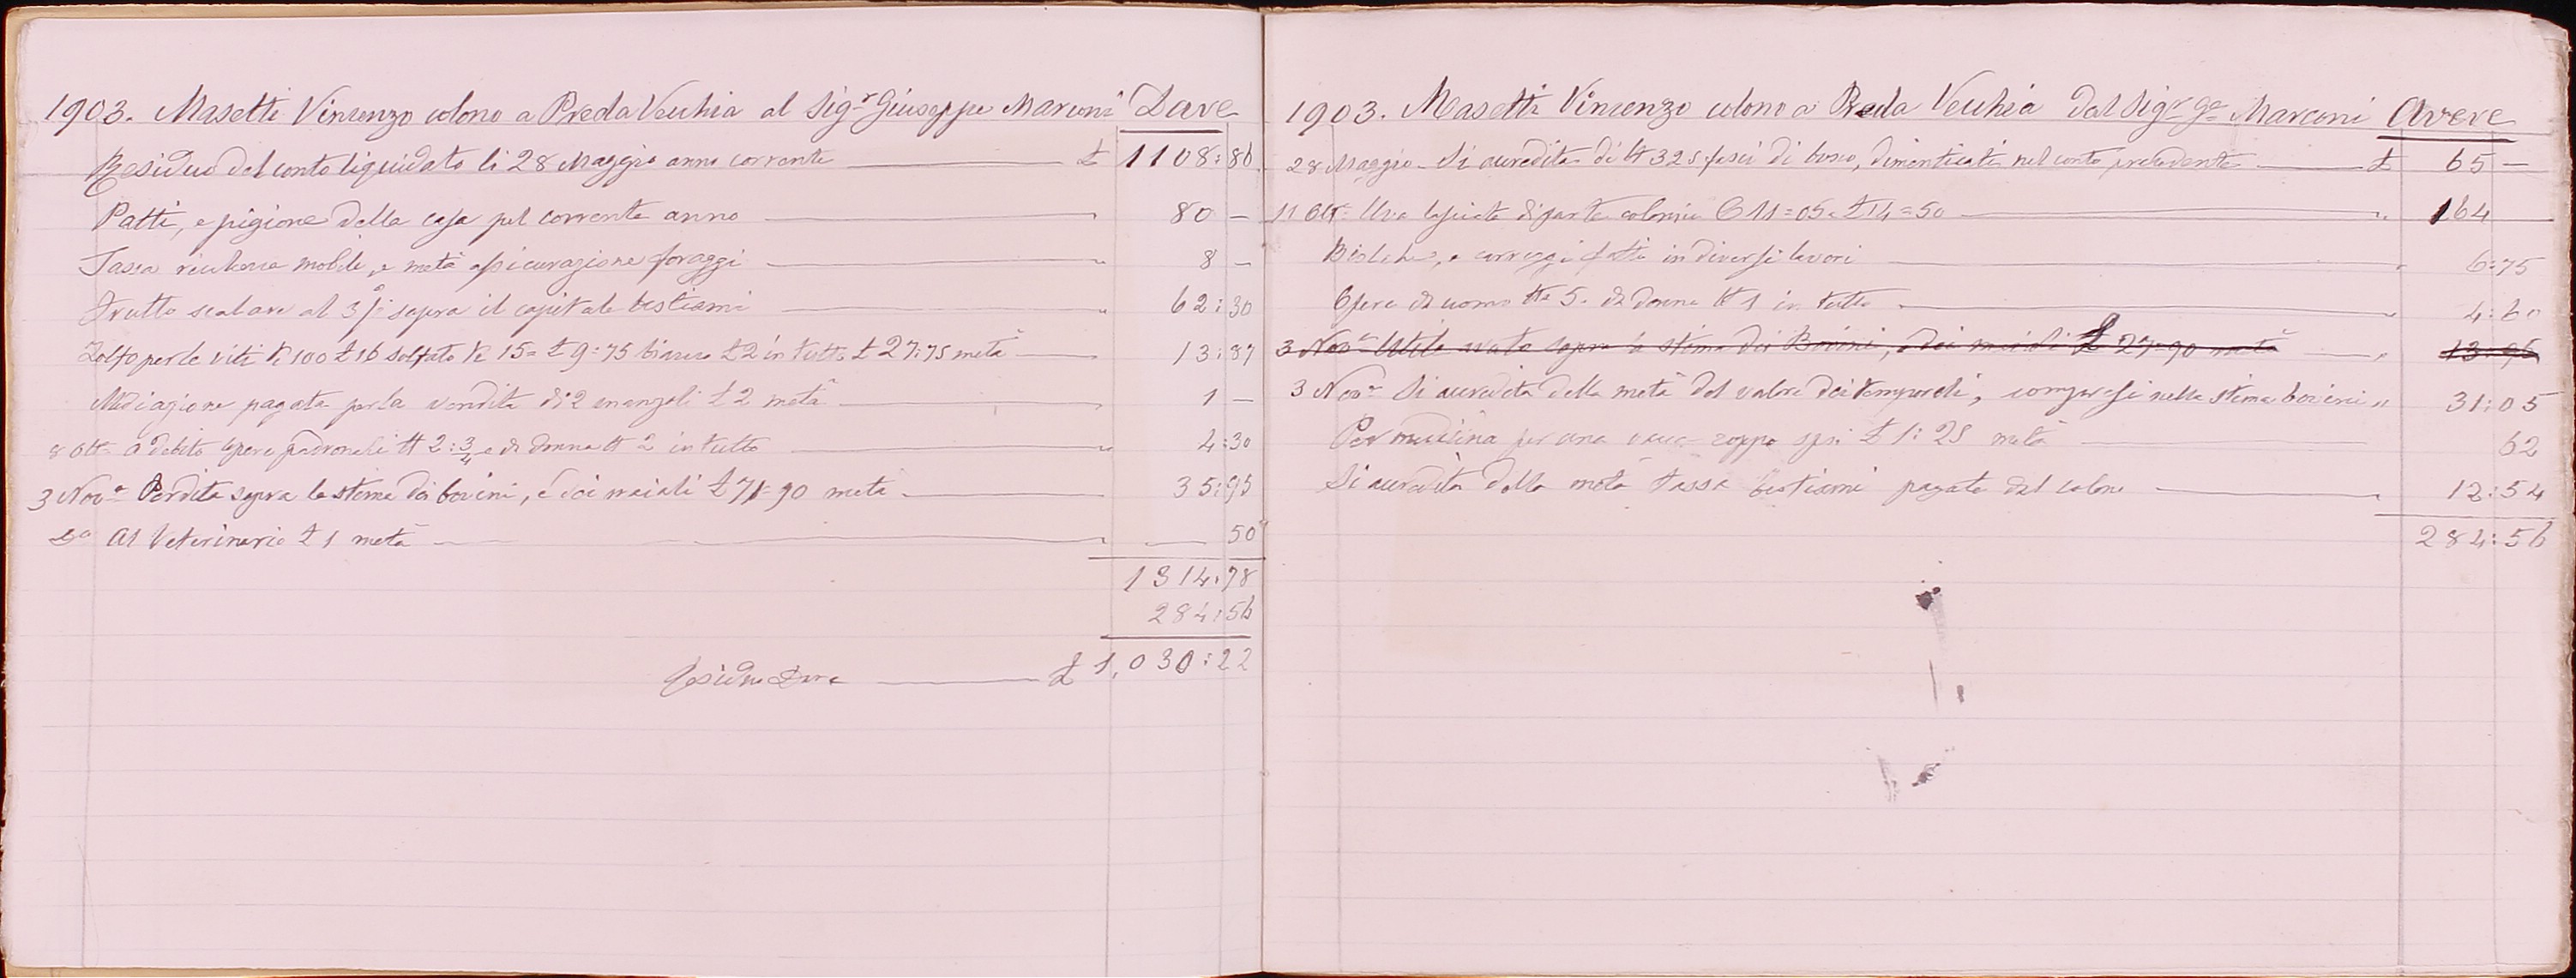 1903. Masetti Vincenzo colono a Preda Vecchia al Sigr Giuseppe Marconi Dare
Residuo del conto liquidato li 28 Maggio anno corrente £ 1108:86
Patti, e pigione della casa pel corrente anno " 80 —
Tassa richezza mobile, e metà assicurazione foraggi " 8 —
Frutto scalare al 3 % sopra il capitale bestiami " 62:30
Zolfo per le viti K 100 £ 16 solfato K 15= £ 9=75 £ 2 in tutto £ 27:75 metà " 13:87
Mediazione pagata per la vendita di 2 manzoli £ 2 metà " 1 —
8 Otte A debito opere padronali N 2:3/4 e di donna N 2 in tutto " 4:30
3 Nove Perdita sopra la stima dei bovini, e dei maiali £ 71=90 metà " 35:95
Do Al Veterinario £ 1 metà " — 50
1314:78
284:56
Residuo Dare £ 1,030:22
1903. Masetti Vincenzo colono a Preda Vecchia dal Sigr Ge Marconi Avere
28 Maggio Si accredita di N 325 fasci di bosco, dimenticati nel conto precedente £ 65 —
11 Otte Uva lasciata di parte colonica C 11=05 a £ 14=50 " 164
Biolche, e carreggi fatti in diversi lavori " 6:75
Opere di uomo N 5. di donna N 1 in tutto " 4:60
3 Nove Utile avuto sopra la stima dei Bovini, e dei maiali £ 27=90 metà " 13:95
3 Nove Si accredita della metà del valore dei temporali, compresi nella stima bovini " 31:05
Per medicina per una vacca zoppa spesi £ 1:25 metà 62
Si accredita della metà tassa bestiami pagata dal colono " 12:54
284:56